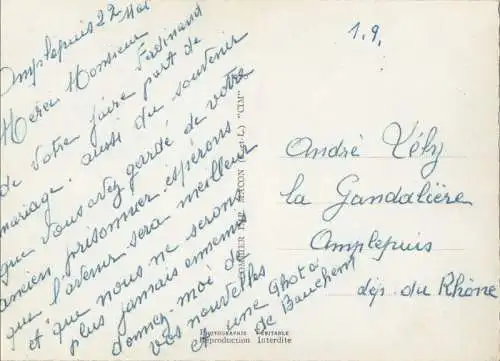 Amplepuis 22 Mai
Merci Monsieur Ferdinand
de votre faire part de
mariage. aussi du souvenir
que vous avez gardé de votre
ancien prisonnier. espérons
que l'avenir sera meilleur
et que nous ne serons
plus jamais ennemis
donnez moi de
vos nouvelles
et une photo
de Bauchent
1.9.
André Vély
la Gandalière
Amplepuis
dép. du Rhône
COMBIER IMP. MACON (S.-&-L.) "CIM"
PHOTOGRAPHIE VÉRITABLE
Reproduction Interdite